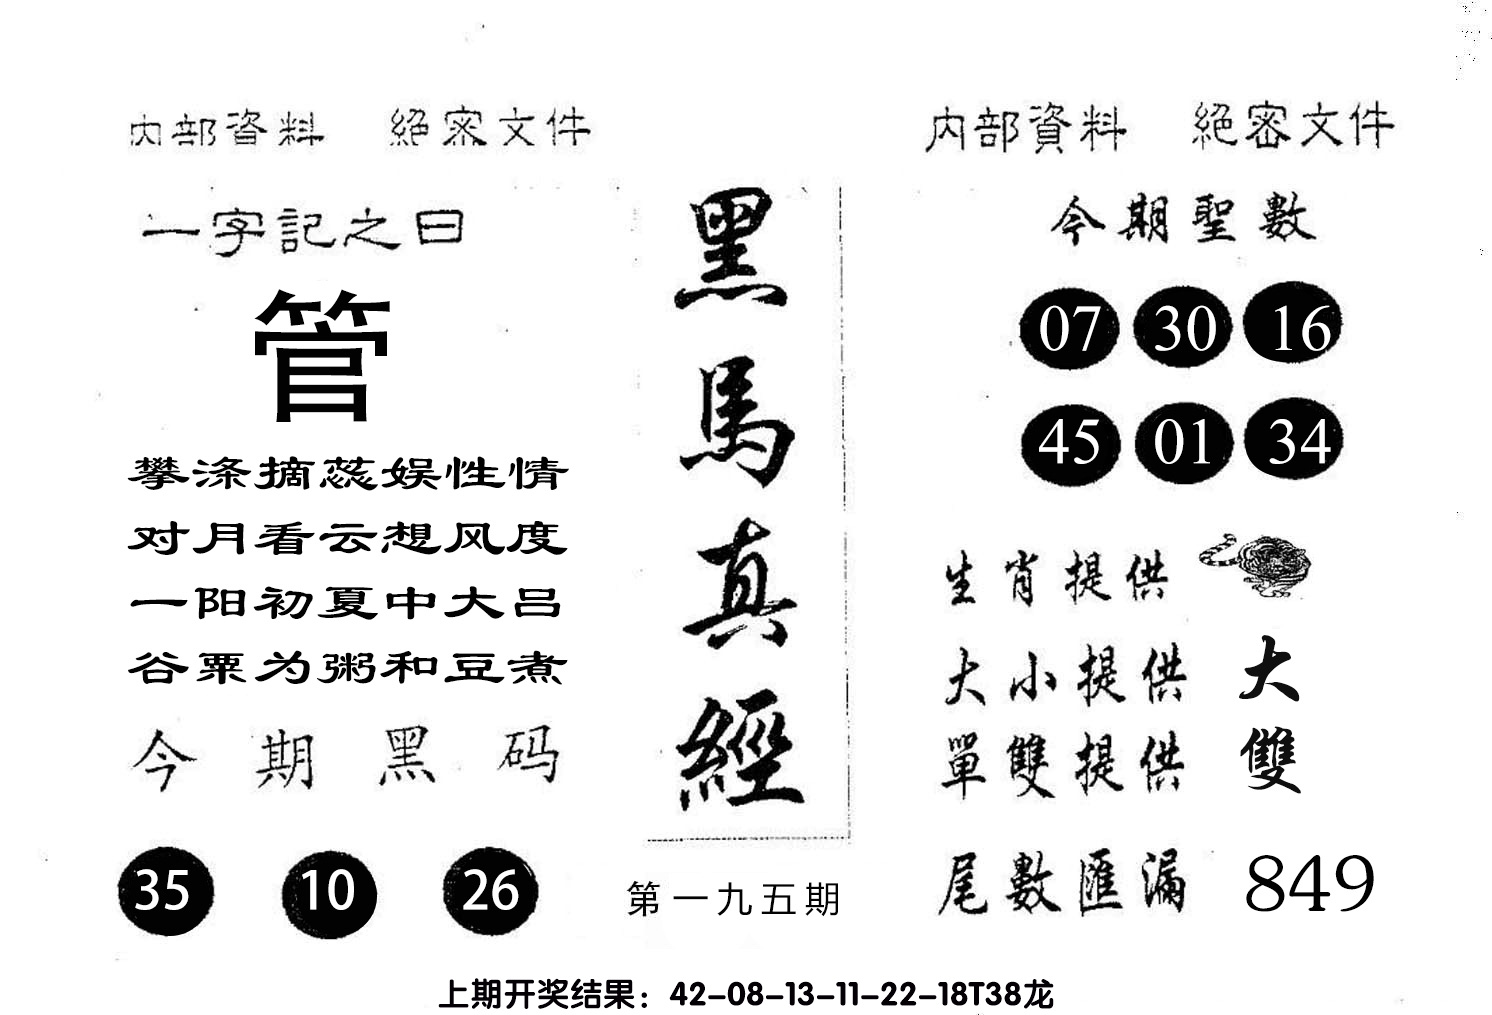 内部資料 絕密文件
一字記之曰
管
攀涤摘蕊娱性情
对月看云想风度
一阳初夏中大吕
谷粟为粥和豆煮
今期黑码
35 10 26
黑馬真經
第一九五期
内部資料 絕密文件
今期聖數
07 30 16
45 01 34
生肖提供
大小提供 大
單雙提供 雙
尾數匯漏 849
上期开奖结果：42-08-13-11-22-18T38龙